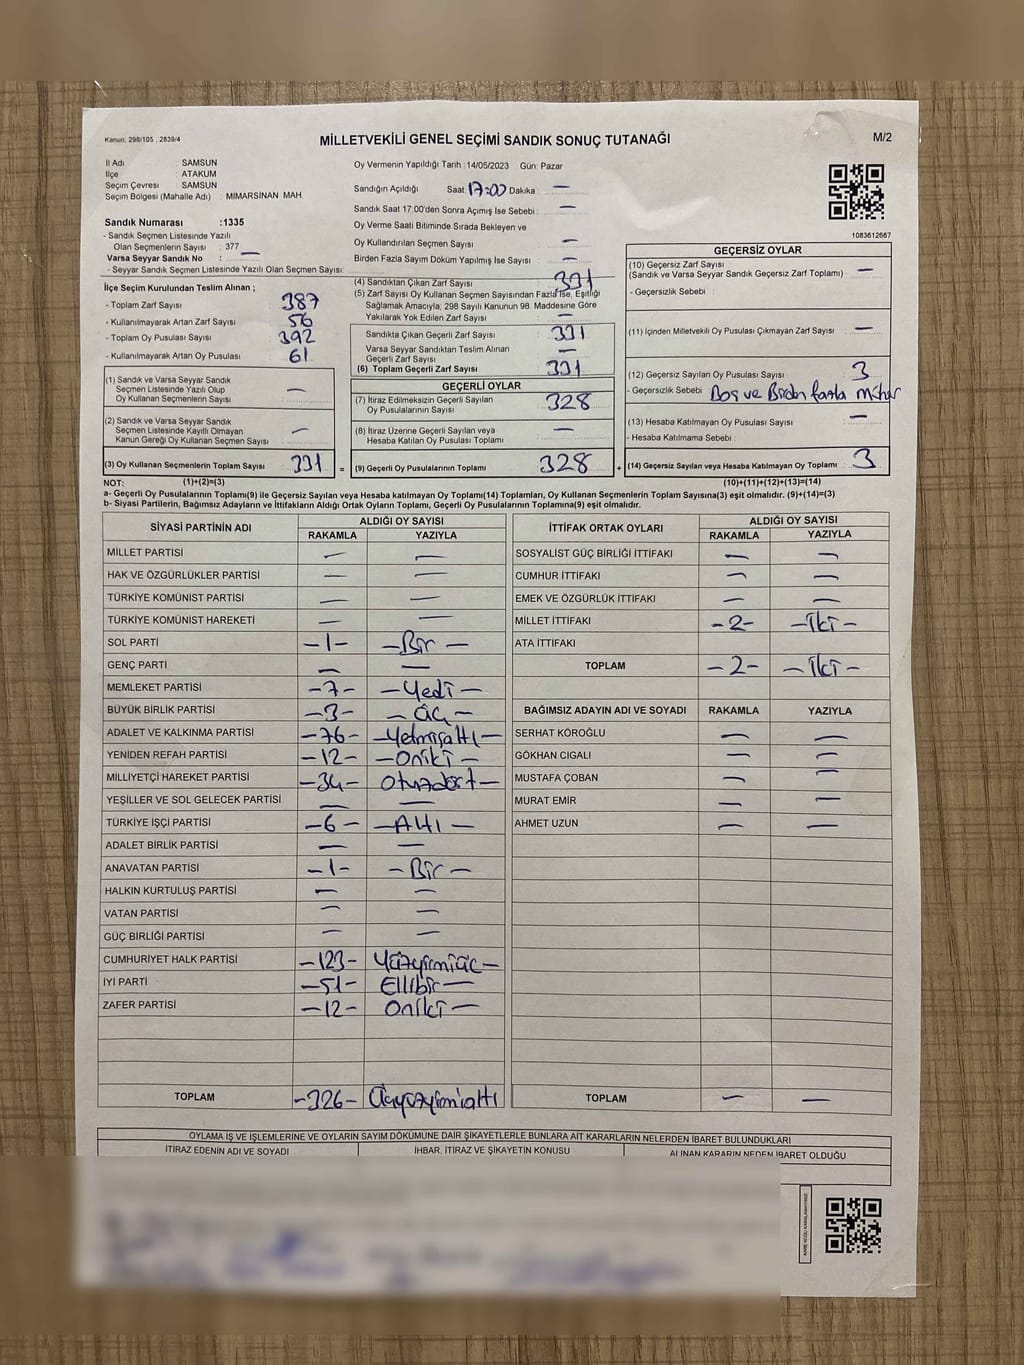 Kanun: 298/105 , 2839/4
MİLLETVEKİLİ GENEL SEÇİMİ SANDIK SONUÇ TUTANAĞI
M/2
İl Adı : SAMSUN
İlçe : ATAKUM
Seçim Çevresi : SAMSUN
Seçim Bölgesi (Mahalle Adı) : MİMARSİNAN MAH
Sandık Numarası :1335
- Sandık Seçmen Listesinde Yazılı
Olan Seçmenlerin Sayısı : 377
Varsa Seyyar Sandık No : —
- Seyyar Sandık Seçmen Listesinde Yazılı Olan Seçmen Sayısı:
İlçe Seçim Kurulundan Teslim Alınan ;
- Toplam Zarf Sayısı : 387
- Kullanılmayarak Artan Zarf Sayısı : 56
- Toplam Oy Pusulası Sayısı : 392
- Kullanılmayarak Artan Oy Pusulası : 61
(1) Sandık ve Varsa Seyyar Sandık
Seçmen Listesinde Yazılı Olup
Oy Kullanan Seçmenlerin Sayısı : —
(2) Sandık ve Varsa Seyyar Sandık
Seçmen Listesinde Kayıtlı Olmayan
Kanun Gereği Oy Kullanan Seçmen Sayısı : —
(3) Oy Kullanan Seçmenlerin Toplam Sayısı : 331 =
Oy Vermenin Yapıldığı Tarih :14/05/2023 Gün: Pazar
Sandığın Açıldığı Saat 17:00 Dakika : —
Sandık Saat 17:00'den Sonra Açımış İse Sebebi : —
Oy Verme Saati Bitiminde Sırada Bekleyen ve
Oy Kullandırılan Seçmen Sayısı : —
Birden Fazla Sayım Döküm Yapılmış İse Sayısı : —
(4) Sandıktan Çıkan Zarf Sayısı : 331
(5) Zarf Sayısı Oy Kullanan Seçmen Sayısından Fazla İse, Eşitliği
Sağlamak Amacıyla, 298 Sayılı Kanunun 98. Maddesine Göre
Yakılarak Yok Edilen Zarf Sayısı : —
Sandıkta Çıkan Geçerli Zarf Sayısı : 331
Varsa Seyyar Sandıktan Teslim Alınan
Geçerli Zarf Sayısı : —
(6) Toplam Geçerli Zarf Sayısı : 331
GEÇERLİ OYLAR
(7) İtiraz Edilmeksizin Geçerli Sayılan
Oy Pusulalarının Sayısı : 328
(8) İtiraz Üzerine Geçerli Sayılan veya
Hesaba Katılan Oy Pusulası Toplamı : —
(9) Geçerli Oy Pusulalarının Toplamı : 328 +
1083612667
GEÇERSİZ OYLAR
(10) Geçersiz Zarf Sayısı
(Sandık ve Varsa Seyyar Sandık Geçersiz Zarf Toplamı) : —
- Geçersizlik Sebebi :
(11) İçinden Milletvekili Oy Pusulası Çıkmayan Zarf Sayısı : —
(12) Geçersiz Sayılan Oy Pusulası Sayısı : 3
- Geçersizlik Sebebi : Boş ve Birden fazla mühür
(13) Hesaba Katılmayan Oy Pusulası Sayısı : —
- Hesaba Katılmama Sebebi :
(14) Geçersiz Sayılan veya Hesaba Katılmayan Oy Toplamı : 3
NOT: (1)+(2)=(3) (10)+(11)+(12)+(13)=(14)
a- Geçerli Oy Pusulasının Toplamı(9) ile Geçersiz Sayılan veya Hesaba katılmayan Oy Toplamı(14) Toplamları, Oy Kullanan Seçmenlerin Toplam Sayısına(3) eşit olmalıdır. (9)+(14)=(3)
b- Siyasi Partilerin, Bağımsız Adayların ve İttifakların Aldığı Ortak Oyların Toplamı, Geçerli Oy Pusulalarının Toplamına(9) eşit olmalıdır.
SİYASİ PARTİNİN ADI ALDIĞI OY SAYISI
RAKAMLA YAZIYLA
MİLLET PARTİSİ — —
HAK VE ÖZGÜRLÜKLER PARTİSİ — —
TÜRKİYE KOMÜNİST PARTİSİ — —
TÜRKİYE KOMÜNİST HAREKETİ — —
SOL PARTİ –1– –Bir–
GENÇ PARTİ — —
MEMLEKET PARTİSİ –7– –Yedi–
BÜYÜK BİRLİK PARTİSİ –3– –Üç–
ADALET VE KALKINMA PARTİSİ –76– –Yetmişaltı–
YENİDEN REFAH PARTİSİ –12– –Oniki–
MİLLİYETÇİ HAREKET PARTİSİ –34– Otuzdört–
YEŞİLLER VE SOL GELECEK PARTİSİ — —
TÜRKİYE İŞÇİ PARTİSİ –6– –Altı–
ADALET BİRLİK PARTİSİ — —
ANAVATAN PARTİSİ –1– –Bir–
HALKIN KURTULUŞ PARTİSİ — —
VATAN PARTİSİ — —
GÜÇ BİRLİĞİ PARTİSİ — —
CUMHURİYET HALK PARTİSİ –123– Yüzyirmiüç–
İYİ PARTİ –51– Ellibir–
ZAFER PARTİSİ –12– Oniki–
TOPLAM –326– Üçyüzyirmialtı
İTTİFAK ORTAK OYLARI ALDIĞI OY SAYISI
RAKAMLA YAZIYLA
SOSYALİST GÜÇ BİRLİĞİ İTTİFAKI — —
CUMHUR İTTİFAKI — —
EMEK VE ÖZGÜRLÜK İTTİFAKI — —
MİLLET İTTİFAKI –2– –İki–
ATA İTTİFAKI
TOPLAM –2– –İki–
BAĞIMSIZ ADAYIN ADI VE SOYADI RAKAMLA YAZIYLA
SERHAT KÖROĞLU — —
GÖKHAN CIGALI — —
MUSTAFA ÇOBAN — —
MURAT EMİR — —
AHMET UZUN — —
TOPLAM — —
OYLAMA İŞ VE İŞLEMLERİNE VE OYLARIN SAYIM DÖKÜMÜNE DAİR ŞİKAYETLERLE BUNLARA AİT KARARLARIN NELERDEN İBARET BULUNDUKLARI
İTİRAZ EDENİN ADI VE SOYADI İHBAR, İTİRAZ VE ŞİKAYETİN KONUSU ALINAN KARARIN NEDEN İBARET OLDUĞU